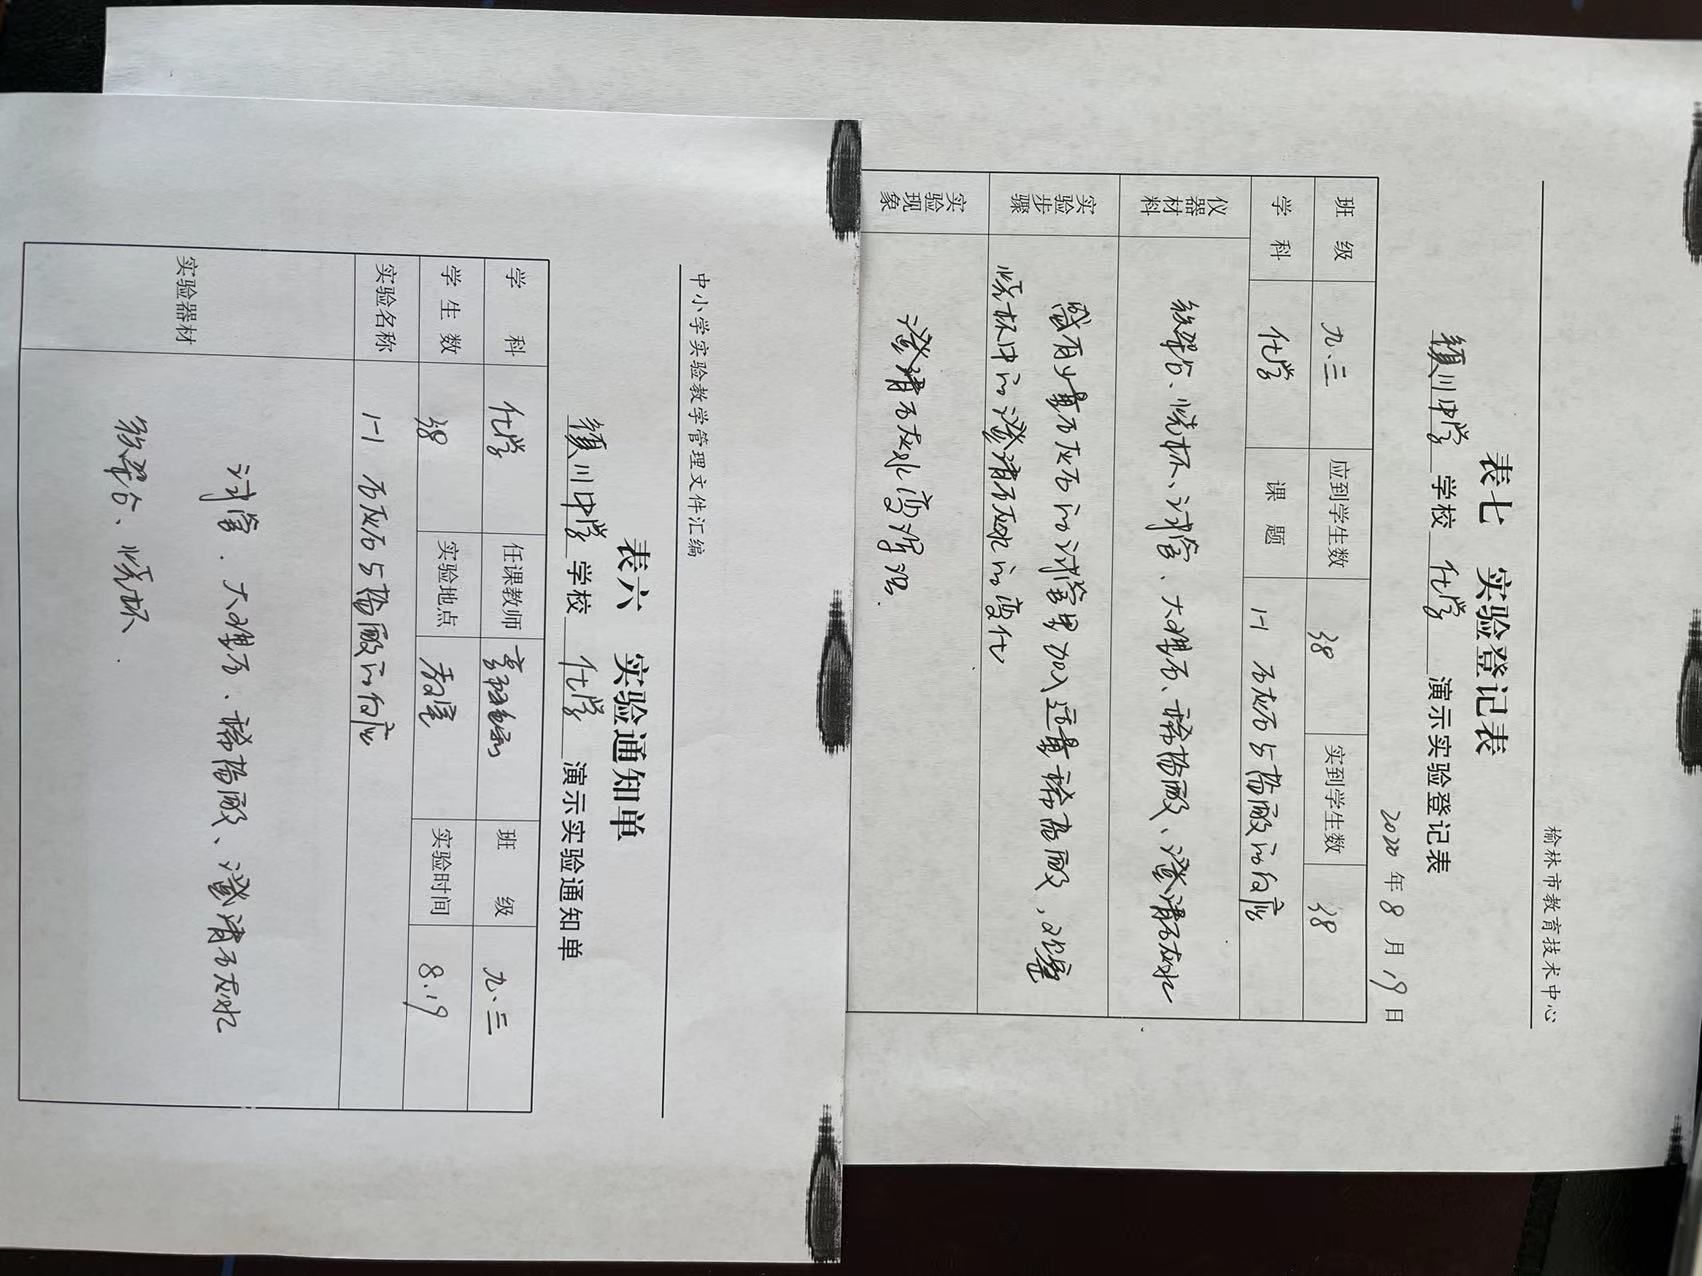 中小学实验教学管理文件汇编
表六 实验通知单
颍川中学 学校 化学 演示实验通知单
学 科 化学 任课教师 班 级 九.三
学 生 数 38 实验地点 教室 实验时间 8.19
实验名称 1-1 石灰石与盐酸的反应
实验器材 试管、大理石、稀盐酸、澄清石灰水
铁架台、烧杯.
榆林市教育技术中心
表七 实验登记表
颍川中学 学校 化学 演示实验登记表
2020 年 8 月 19 日
班 级 九.三 应到学生数 38 实到学生数 38
学 科 化学 课 题 1-1 石灰石与盐酸的反应
仪器材料 铁架台、烧杯、试管、大理石、稀盐酸、澄清石灰水
实验步骤 盛有少量石灰石的试管里加入适量稀盐酸,观察
烧杯中的澄清石灰水的变化
实验现象 澄清石灰水变浑浊.